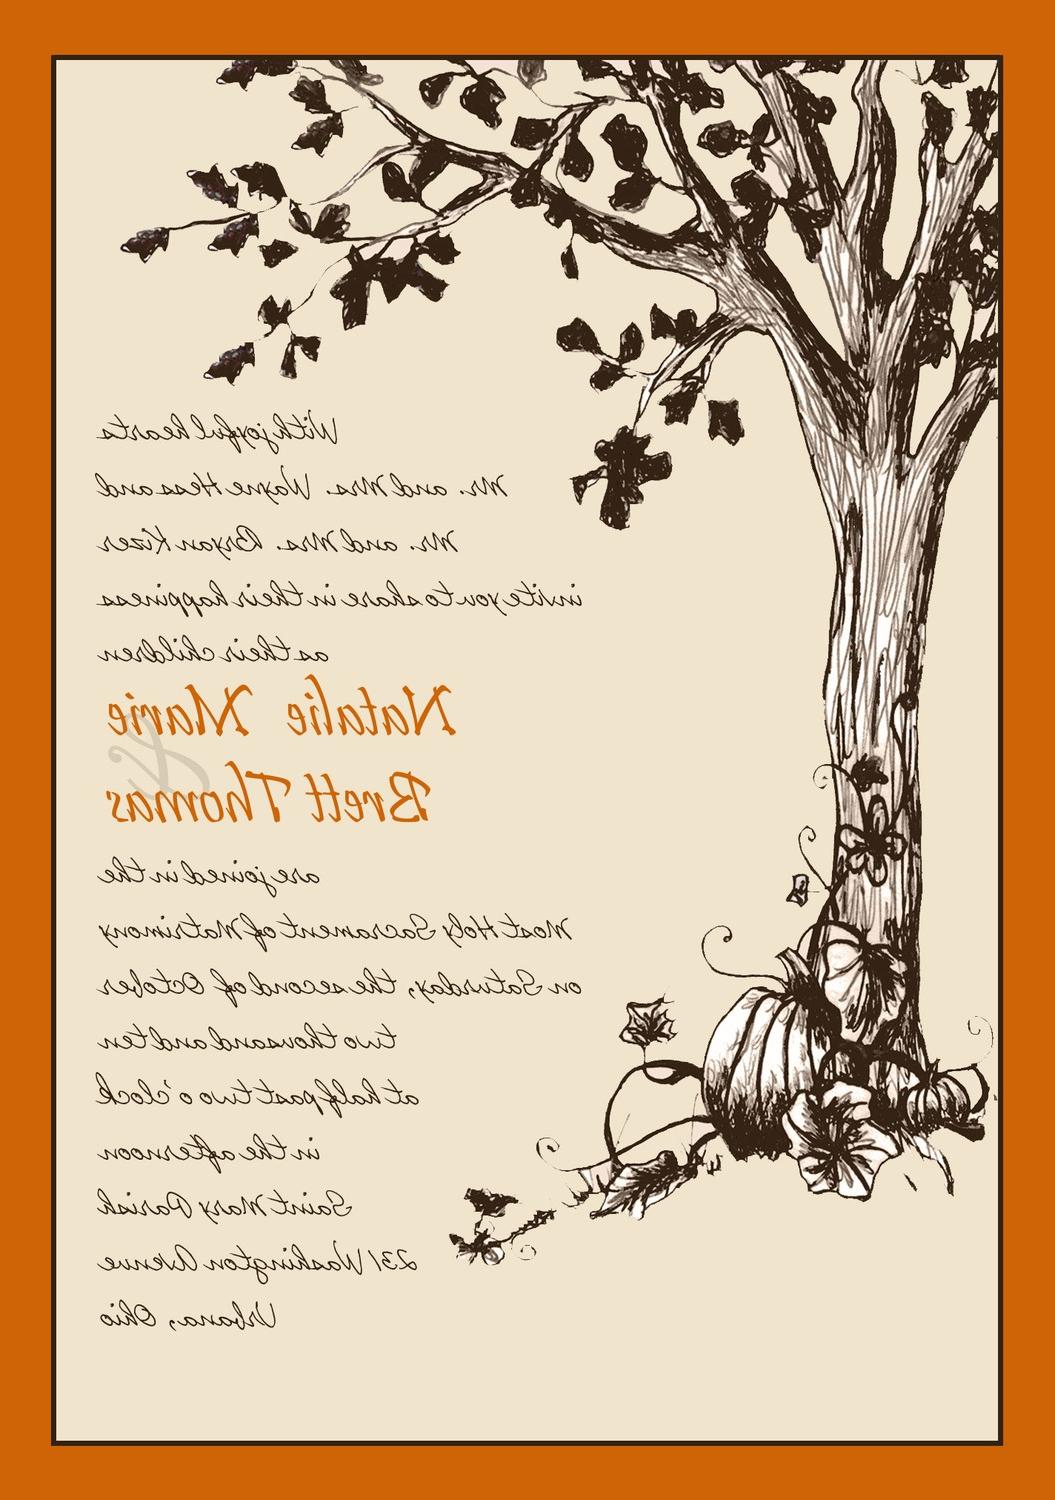 With joyful hearts
Mr. and Mrs. Wayne Hess and
Mr. and Mrs. Bryan Kizer
invite you to share in their happiness
as their children
Natalie Marie
&
Brett Thomas
are joined in the
Most Holy Sacrament of Matrimony
on Saturday, the second of October
two thousand and ten
at half past two o'clock
in the afternoon
Saint Mary Parish
231 Washington Avenue
Urbana, Ohio